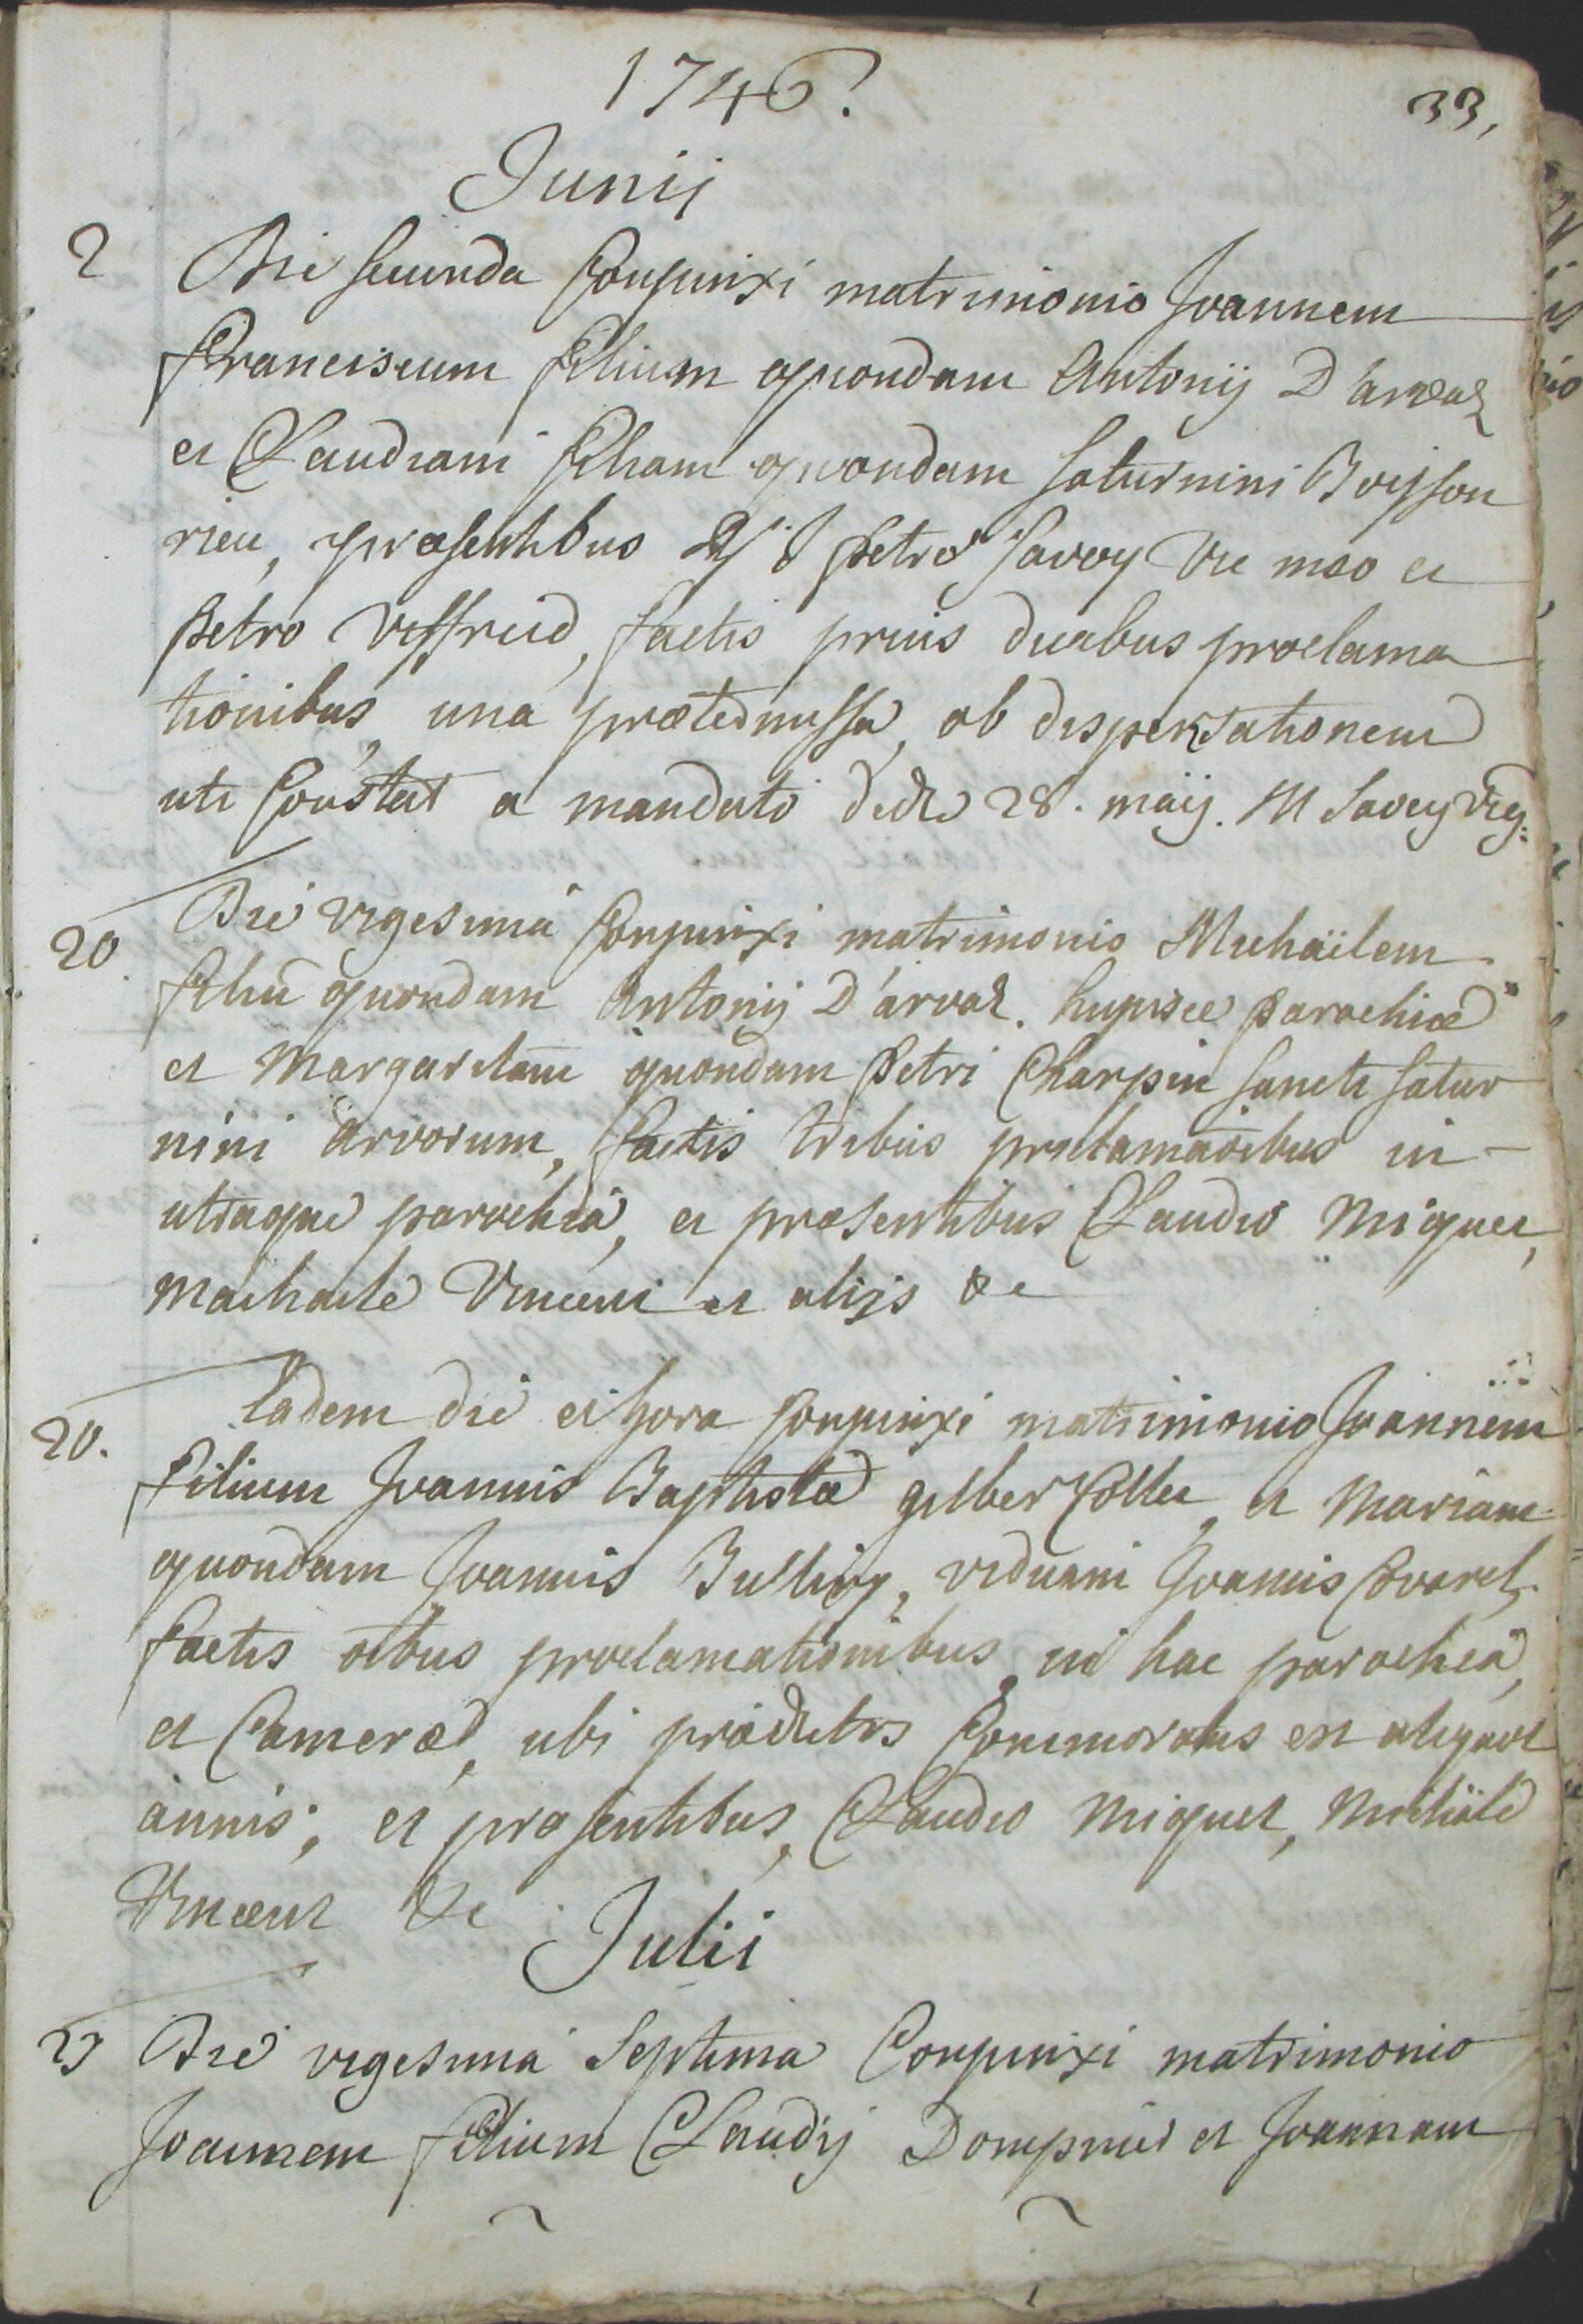 1746.
33,
Junij
2 Die secunda Conjunxi matrimonio Joannem
Franciscum filium quondam Antonij D'arvas
et Claudiam filiam quondam saturnini Boisson
rieu, præsentibus Petro Savoy meo et
Petro Viffreid, factis prius duabus proclama
tionibus, una prætermissa, ob dispensationem
uti Constat a mandato 28. maij. M Savoy
20. Die vigesima Conjunxi matrimonio Michaëlem
filiū quondam Antonij D'arvas. hujusce Parochiæ
et Margaritam quondam Petri Charpin sancti satur
nini arvorum, factis tribus in
utraque parochiâ, et præsentibus Claudio Miquet,
Vincent et alijs &c
20. Eadem die et hora Conjunxi matrimonio Joannem
filium Joannis Baptistæ gilber Collet, et Mariam
quondam Joannis Bulliog, viduam Joannis
factis proclamationibus, in hac parochiâ,
et Cameræ, ubi Commoratus est aliquot
annis; et præsentibus, Claudio Miquet, Michaële
Vincent &c
Julii
27 Die vigesima Septima Conjunxi matrimonio
Joannem filium Claudij Dompnier et Joannam